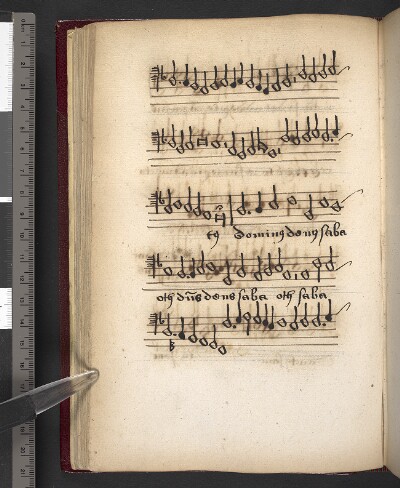 ty dominus deus saba
oth dūs deus saba oth saba